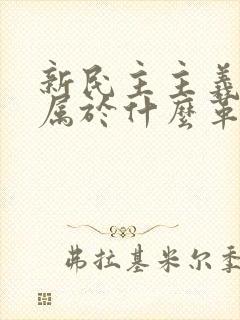 新民主主義
属於什麼革
弗拉基米尔季